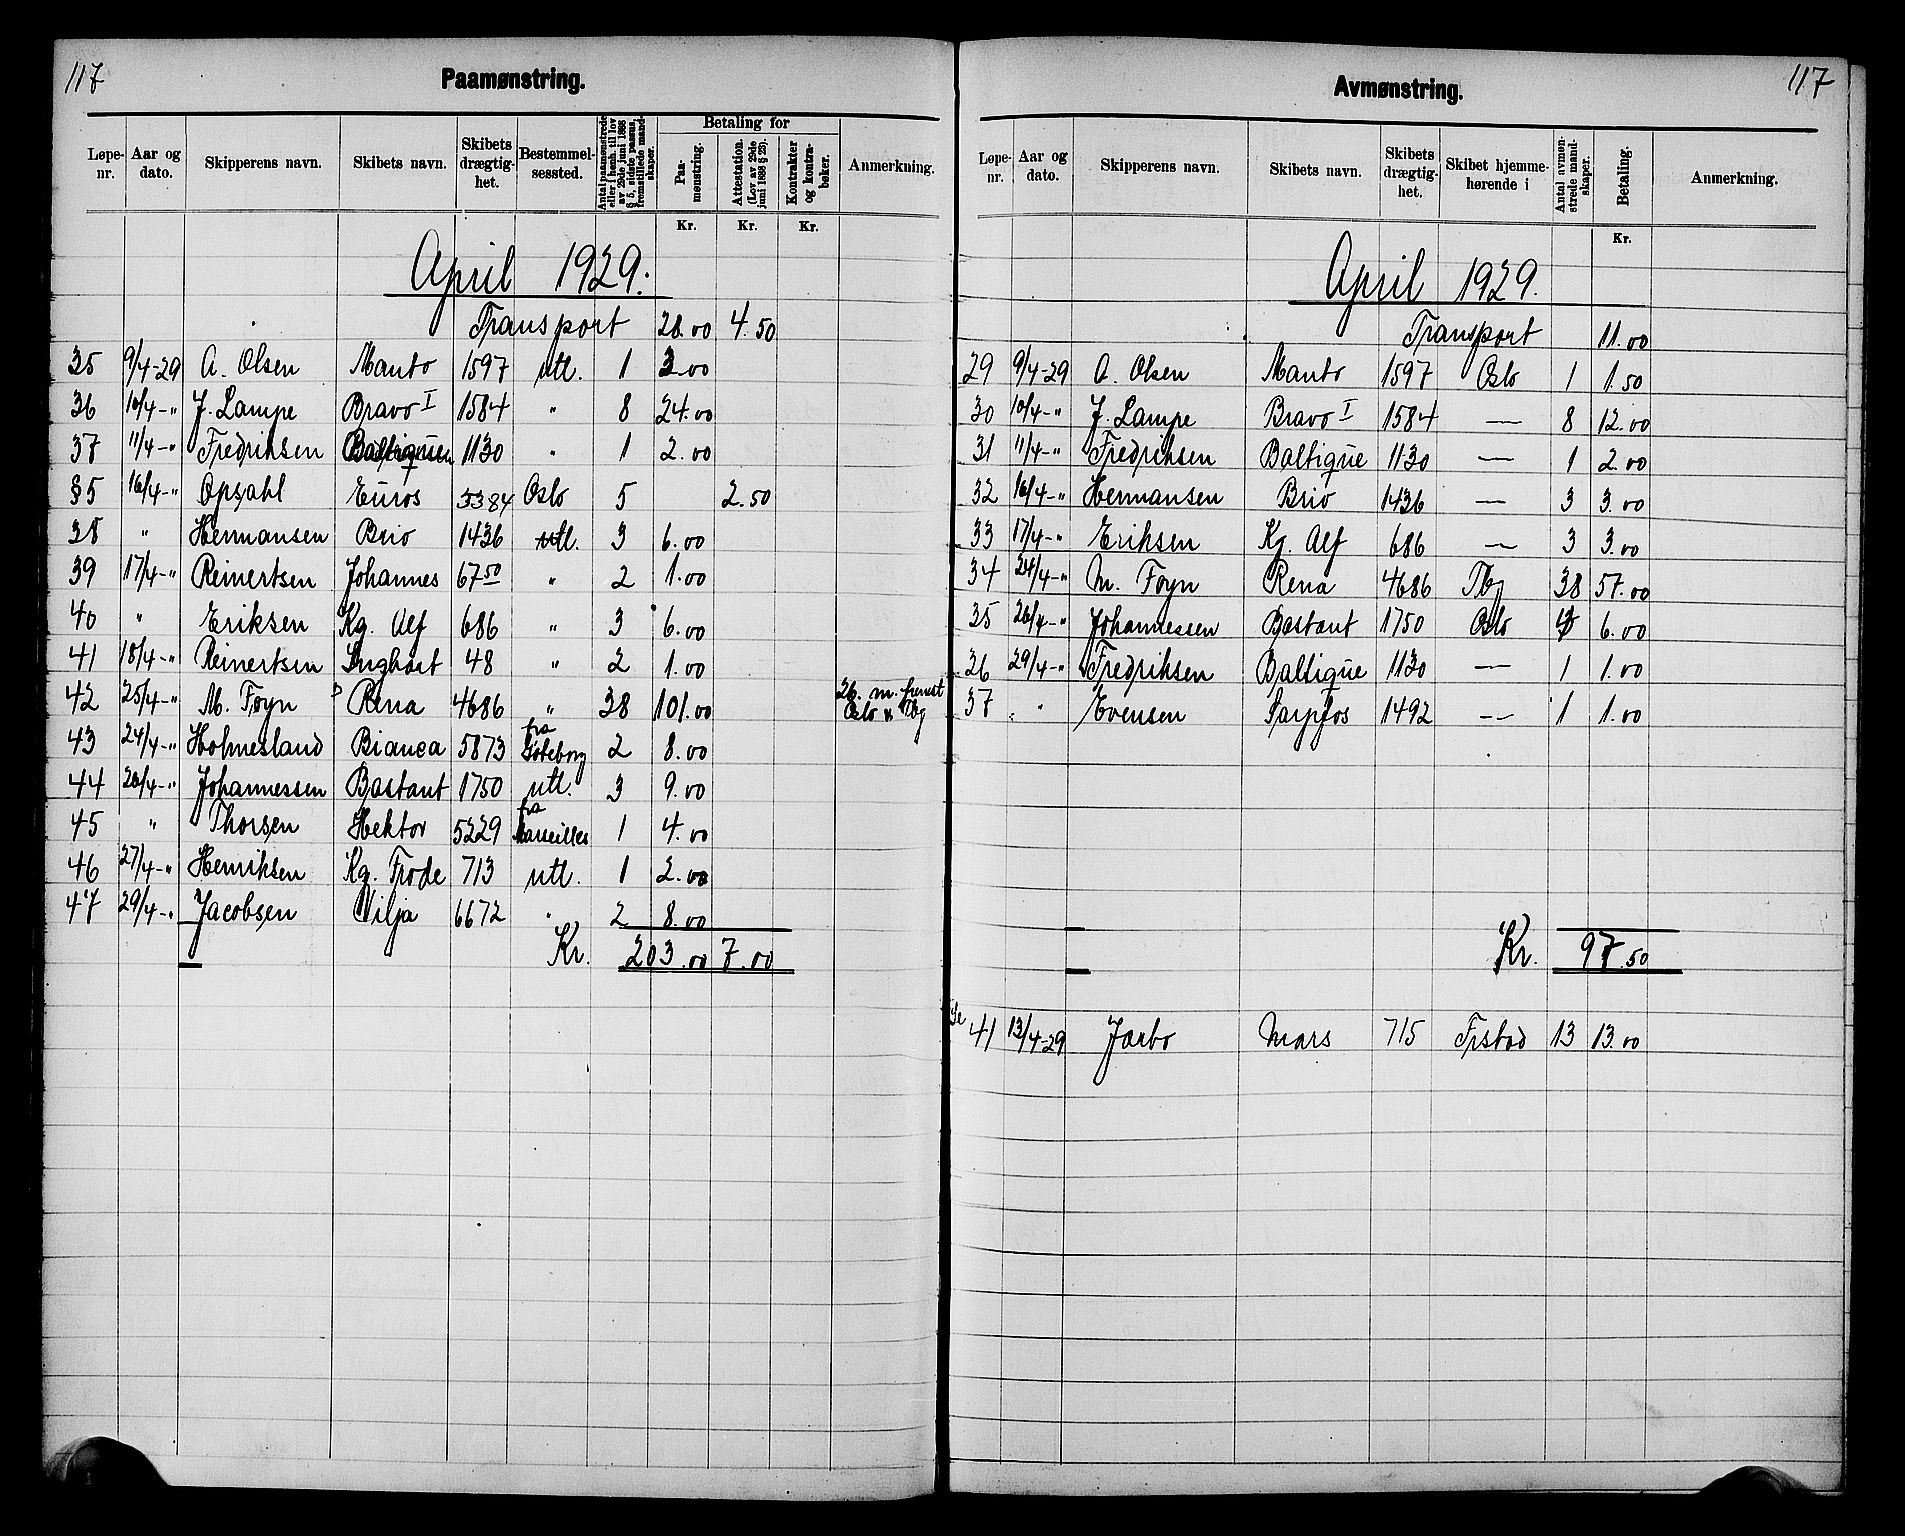 117
Paamønstring.
Løpe-nr. Aar og dato. Skipperens navn. Skibets navn. Skibets drægtig-het. Bestemmel-sessted. Antal paamønstrede eller i henh. til lov av 29de juni 1888 § 5, sidste passus, fremstillede mand-skaper. Betaling for Paa-mønstring. Attestation. (Lov av 29de juni 1888 § 23). Kontrakter og kontra-bøker. Anmerkning.
Kr. Kr. Kr.
April 1929.
Transport 28.00 4.50
35 9/4-29 A. Olsen Manto 1597 utl. 1 3.00
36 10/4-" J. Lampe Bravo I 1584 " 8 24.00
37 11/4-" Fredriksen 1130 " 1 2.00
§5 16/4-" Opsahl Euros 3384 Oslo 5 2.50
38 " Hermansen Brio 1436 utl. 3 6.00
39 17/4-" Reinertsen Johannes 67 50 " 2 1.00
40 " Eriksen Kg. Alf 686 " 3 6.00
41 18/4-" Reinertsen 48 " 2 1.00
42 25/4-" M. Foyn Rena 4686 " 38 101.00 26. m. fremst Oslo
43 24/4-" Holmesland Bianca 5873 fra Göteborg 2 8.00
44 26/4-" Johannessen Bastant 1750 utl. 3 9.00
45 " Thorsen Hektor 5229 fra Marseilles 1 4.00
46 27/4-" Henriksen Kg. Frode 713 utl. 1 2.00
47 29/4-" Jacobsen Vilja 6672 " 2 8.00
Kr. 203.00 7.00
117
Avmønstring.
Løpe-nr. Aar og dato. Skipperens navn. Skibets navn. Skibets drægtig-het. Skibet hjemme-hørende i Antal avmøn-strede mand-skaper. Betaling. Anmerkning.
Kr.
April 1929.
Transport 11.00
29 9/4-29 A. Olsen Manto 1597 Oslo 1 1.50
30 10/4-" J. Lampe Bravo I 1584 — 8 12.00
31 11/4-" Fredriksen Baltique 1130 — 1 2.00
32 16/4-" Hermansen Brio 1436 — 3 3.00
33 17/4-" Eriksen Kg. Alf 686 — 3 3.00
34 24/4-" M. Foyn Rena 4686 Tbg 38 57.00
35 26/4-" Johannessen Bastant 1750 Oslo 6.00
36 29/4-" Fredriksen Baltique 1130 — 1 1.00
37 " Evensen Sarpfos 1492 — 1 1.00
Kr. 97.50
41 13/4-29 Jarbo Mars 715 Frstad 13 13.00